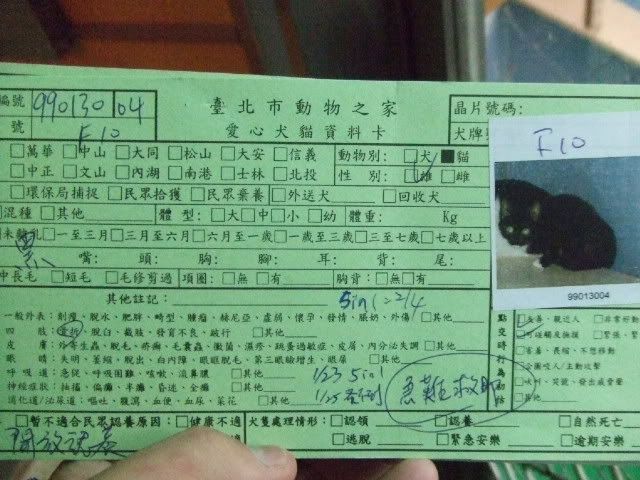 編號 990130 04 臺北市動物之家 晶片號碼:
號 F10 愛心犬貓資料卡 犬牌號
F10
□萬華 □中山 □大同 □松山 □大安 □信義 動物別: □犬 ■貓
□中正 □文山 □內湖 □南港 □士林 □北投 性別: □雄 □雌
□環保局捕捉 □民眾拾獲 □民眾棄養 □外送犬 □回收犬
□混種 □其他 體型: □大 □中 □小 □幼 體重: Kg
□未離乳 □一至三月 □三至六月 □六月至一歲 □一至三歲 □三至七歲 □七歲以上
黑 嘴: 頭: 胸: 腳: 耳: 背: 尾:
中長毛 □短毛 □毛修剪過 項圈: □無 □有 胸背: □無 □有
99013004
其他註記: 5in1=2/4
一般外表: 削瘦、脫水、肥胖、畸型、腫瘤、赫尼亞、虛弱、懷孕、發情、脹奶、外傷 □其他
四肢: 骨折、脫臼、截肢、發育不良、跛行 □其他
皮膚: 外寄生蟲、脫毛、疥癬、毛囊蟲、黴菌、濕疹、跳蚤過敏症、皮屑、內分泌失調 □其他
眼睛: 失明、萎縮、脫出、白內障、眼瞼脫毛、第三眼瞼增生、眼屎 □其他
呼吸道: 急促、呼吸困難、咳嗽、流鼻膿 □其他 1/23 5in1
神經症狀: 抽搐、偏頭、半癱、昏迷、全癱 □其他 1/25
消化道/泌尿道: 嘔吐、腹瀉、血便、血尿、菜花 □其他
急難救助
點交時行為初評
□友善、親近人 □非常好動
□可碰觸及撫摸 □緊張、
□害羞、畏縮、不想移動
□企圖咬人/主動攻擊
□吠叫、哭號、發出威脅聲
□其他
□暫不適合民眾認養原因: □健康不適 犬隻處理情形: □認領 □認養 □自然死亡
開放認養 □逃脫 □緊急安樂 □逾期安樂